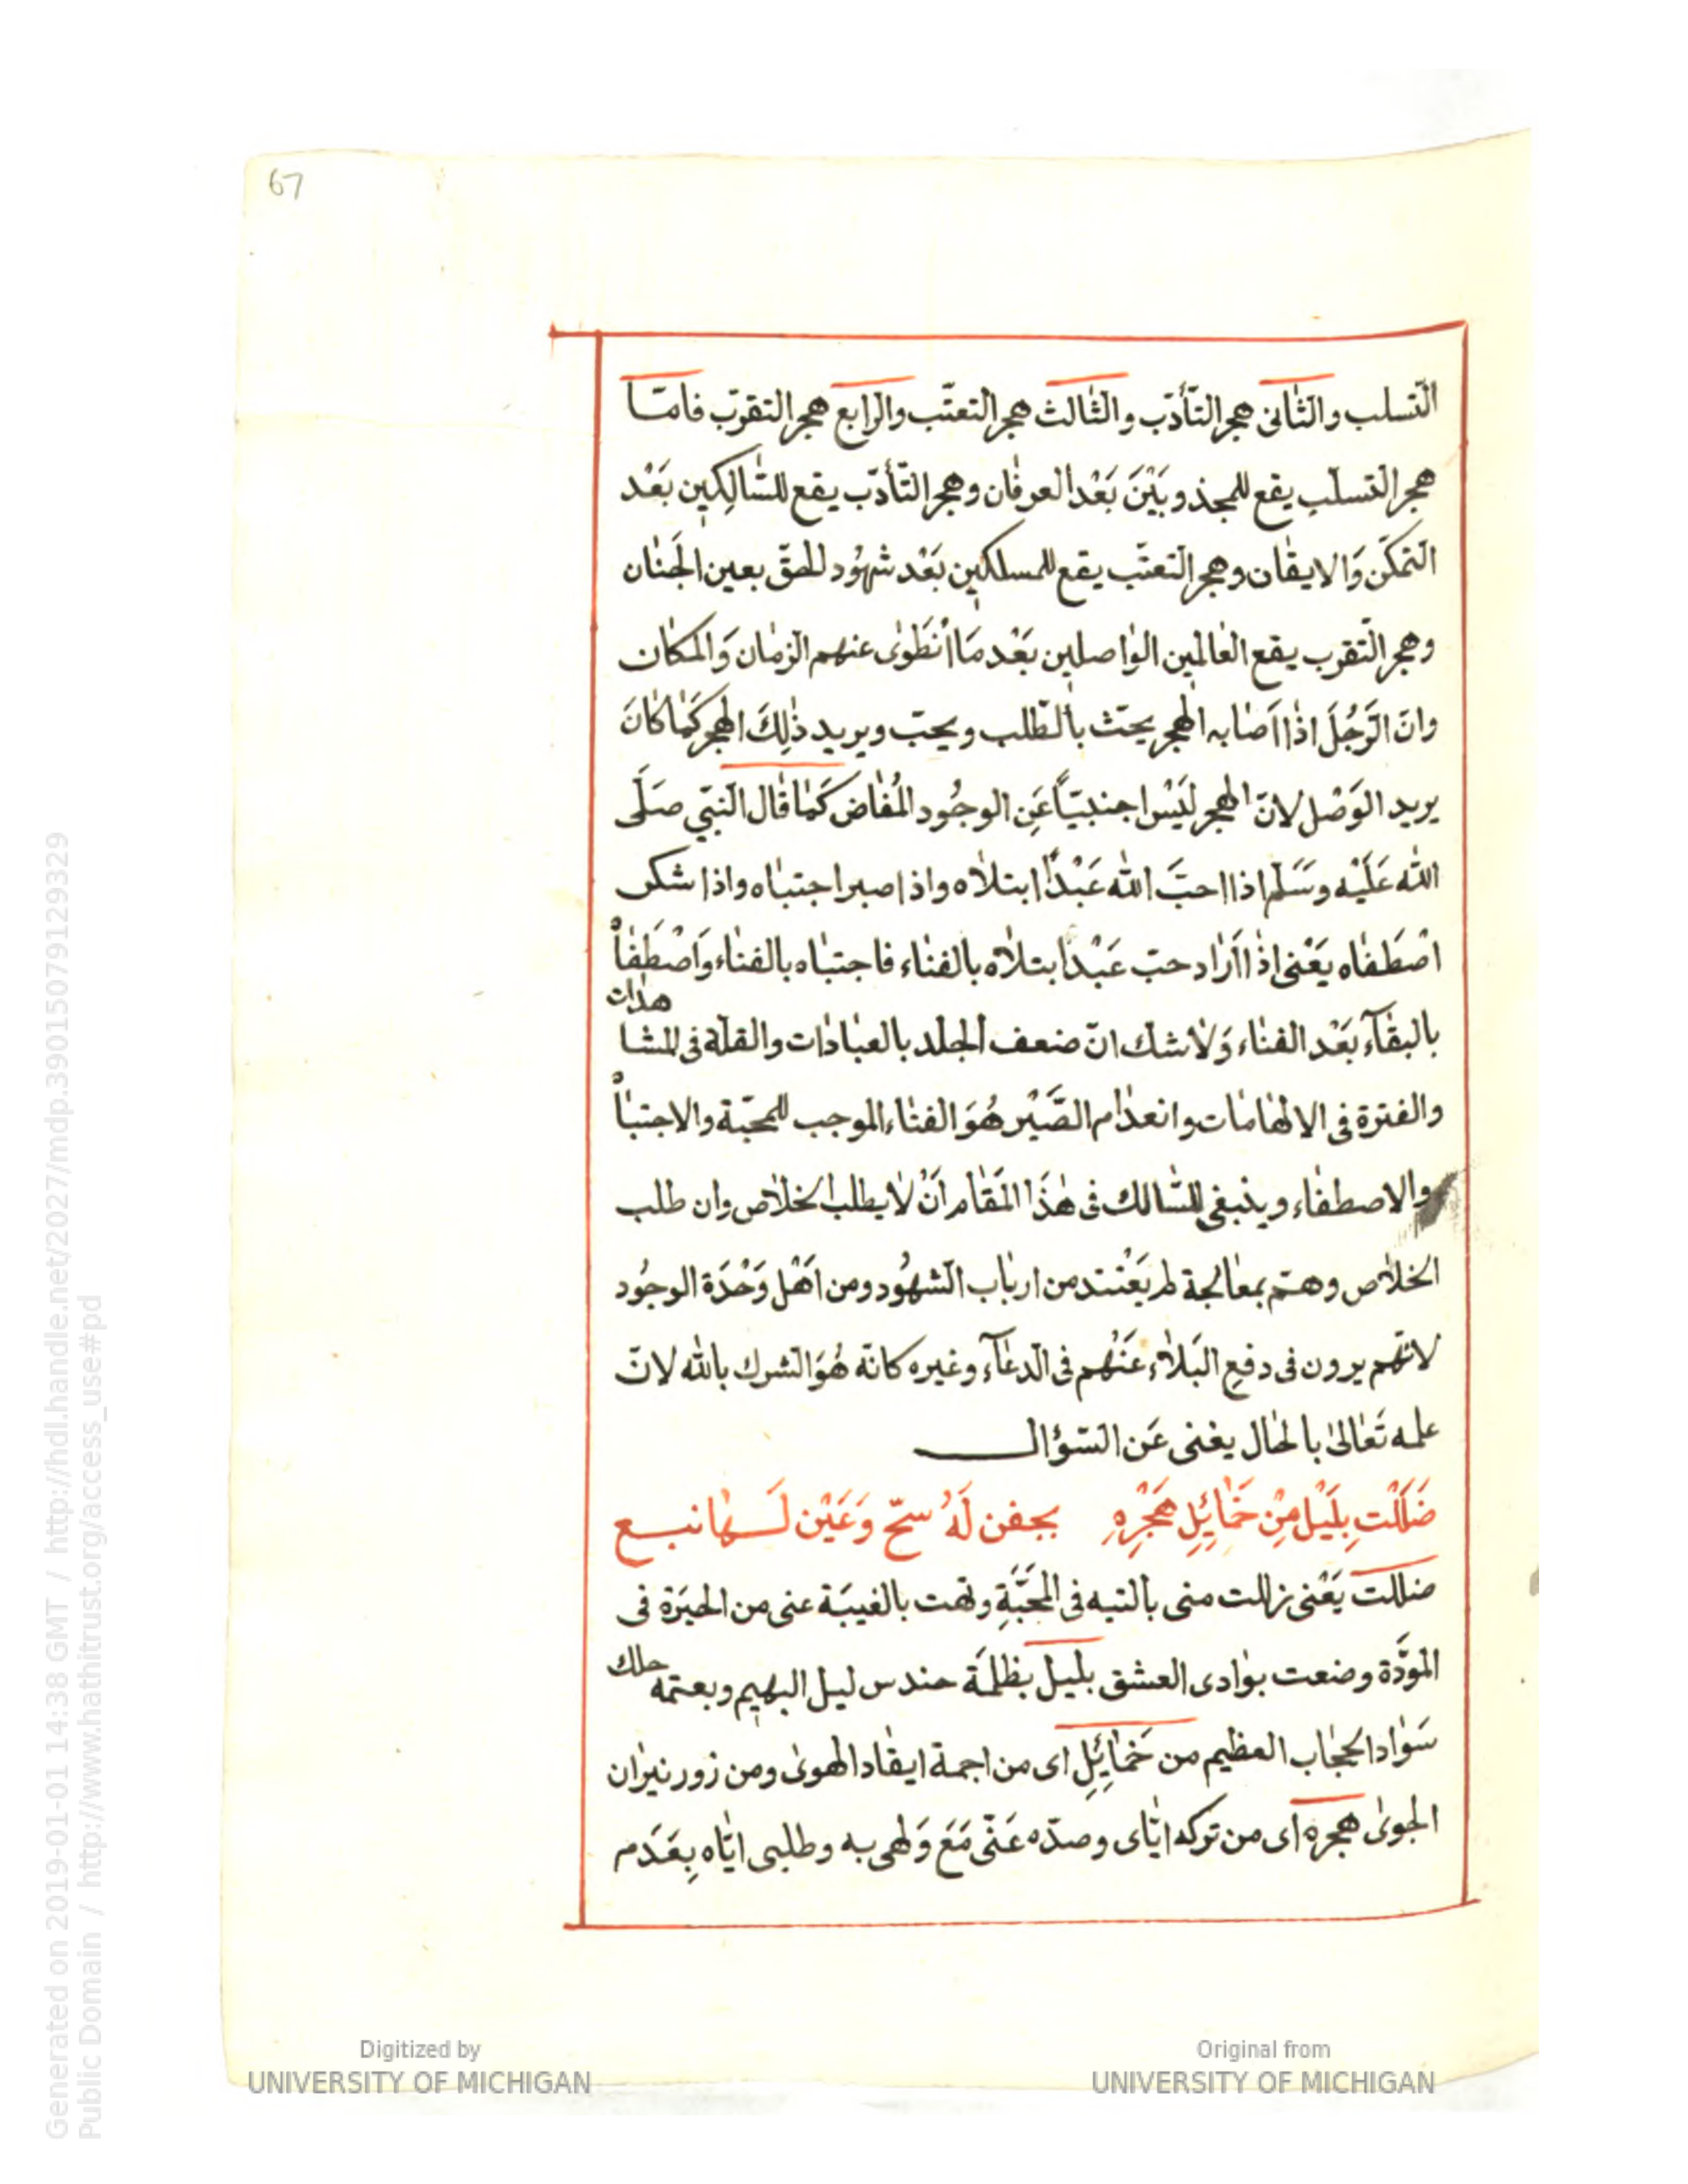 67
التّسلب والثّانى هجر التّأدّب والثّالث هجر التعتّب والرّابع هجر التقرّب فامّا
هجر التّسلّب يقع للمجذوبَيْنَ بَعْد العرفان وهجر التّأدّب يقع للسّالِكِين بَعْد
التّمكّن وَالايقان وهجر التّعتّب يقع للمسلكين بَعْد شهُود للحقّ بعين الجَنان
وهجر التّقرب يقع العالمين الواصلين بَعْد مَا اْنْطَوٰى عنهم الزمان وَالمكان
وانّ الرّجُلَ اذا اَصَابه الهجر يحتّ بالطّلب ويحبّ ويريد ذٰلِكَ الهجر كَمٰا كٰانَ
يريد الوَصْل لانّ الهجر لَيْسَ اجنبيّاً عَنِ الوجُود المُفاض كَمٰا قٰال النّبىّ صَلّى
اللّٰه عَلَيْه وسَلّم اذا احبَّ اللّٰه عَبْدًا ابتلاٰه واذا صبر اجتباه واذا شكر
اصْطَفٰاه يَعْنى اذٰا اَرٰاد حبّ عَبْدٍ ابتلاٰه بالفنٰاء فاجتبٰاه بالفنٰاء وَاصْطَفٰاْه
بالبقٰآء بَعْد الفنٰاء وَلٰا شك انّ ضعف الجلد بالعبٰادٰات والقلّة فى المشاهدات
والفترة فى الالهٰامٰات وانعدٰام الصَّبْر هُوَ الفنٰاء الموجب للمحبّة والاجتبٰاْء
والاصطفٰاء وينبغى للسّالك فى هٰذَا المَقٰام اَنْ لٰا يطلب الخلاٰص وان طلب
الخلاٰص وهتمّ بمعالجة لم يَعْتند من اربٰاب الشهُود ومن اَهْل وَحْدَة الوجُود
لانّهم يرون فى دفع البَلاٰء عَنْهم فى الدعٰآء وغيره كانّه هُوَ الشرك باللّٰه لانّ
علمه تَعٰالىٰ بالحٰال يغنى عَن السّؤال
ضَلَلْت بِلَيْل مِنْ خَمٰائِلِ هَجْرِهِ بجفن لَهُ سحّ وَعَيْن لَهٰا نبع
ضللت يَعْنى زللت منى بالتيه فى المَحَبَّةِ وتهت بالغيبَة عنى من الحيَرَة فى
الموَدّة وضعت بوٰادى العشق بليل بظلمَة حندس ليل البهيم وبعتمه حلك
سَوٰاد الحجٰاب العظيم من خَمٰائِلِ اى من اجمة ايقٰاد الهوىٰ ومن زور نيرٰان
الجوىٰ هجره اى من تركه ايّاى وصدّه عَنّى مَعَ وَلهى به وطلبى ايّاه بِعَدَم
Digitized by
UNIVERSITY OF MICHIGAN
Original from
UNIVERSITY OF MICHIGAN
Generated on 2019-01-01 14:38 GMT / http://hdl.handle.net/2027/mdp.39015079129329
Public Domain / http://www.hathitrust.org/access_use#pd